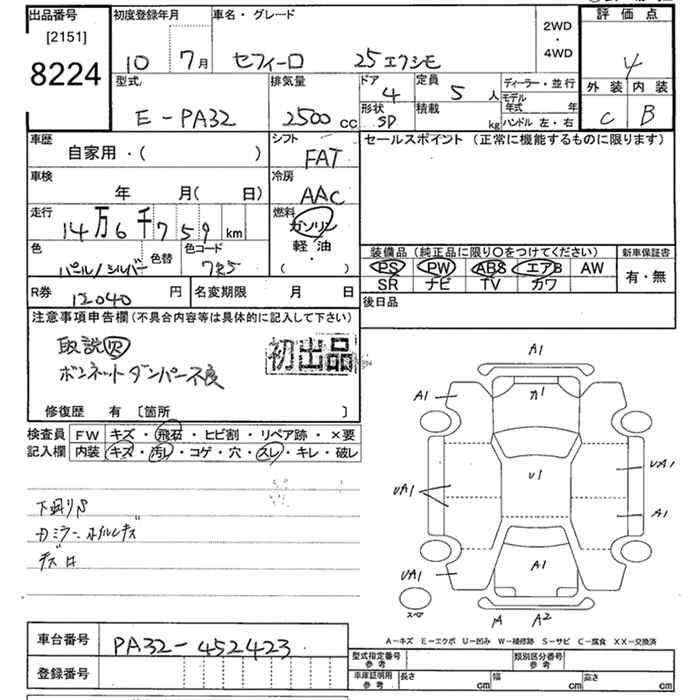 出品番号
[2151]
8224
初度登録年月
10 7月
車名・グレード
セフィーロ 25エクシモ
2WD
・
4WD
評価点
4
外装 内装
C B
型式
E-PA32
排気量
2500 cc
ドア
4
形状
SD
定員
5 人
積載
kg
ディーラー・並行
モデル年式 年
ハンドル 左・右
車歴
自家用・( )
シフト
FAT
セールスポイント (正常に機能するものに限ります)
車検
年 月( 日)
冷房
AAC
走行
14万6千759 km
燃料
ガソリン
軽・油
( ・ )
色
パール/シルバー
色替
色コード
装備品 (純正品に限り○をつけてください)
PS PW ABS エアB AW
SR ナビ TV カワ
新車保証書
有・無
R券
12040 円
名変期限 月 日
後日品
注意事項申告欄(不具合内容等は具体的に記入して下さい)
取説欠
ボンネットダンパー不良
初出品
修復歴 有 [箇所 ]
検査員記入欄
FW キズ・飛石・ヒビ割・リペア跡・×要
内装 キズ・汚レ・コゲ・穴・スレ・キレ・破レ
A1
A1
A1
U1
UA1
UA1
A1
UA1
A1
スペア
A
A2
A-キズ E-エクボ U-凹み W-補修跡 S-サビ C-腐食 XX-交換済
車台番号
PA32-452423
登録番号
型式指定番号
参考
類別区分番号
参考
車庫証明用
参考
長さ cm 幅 cm 高さ cm